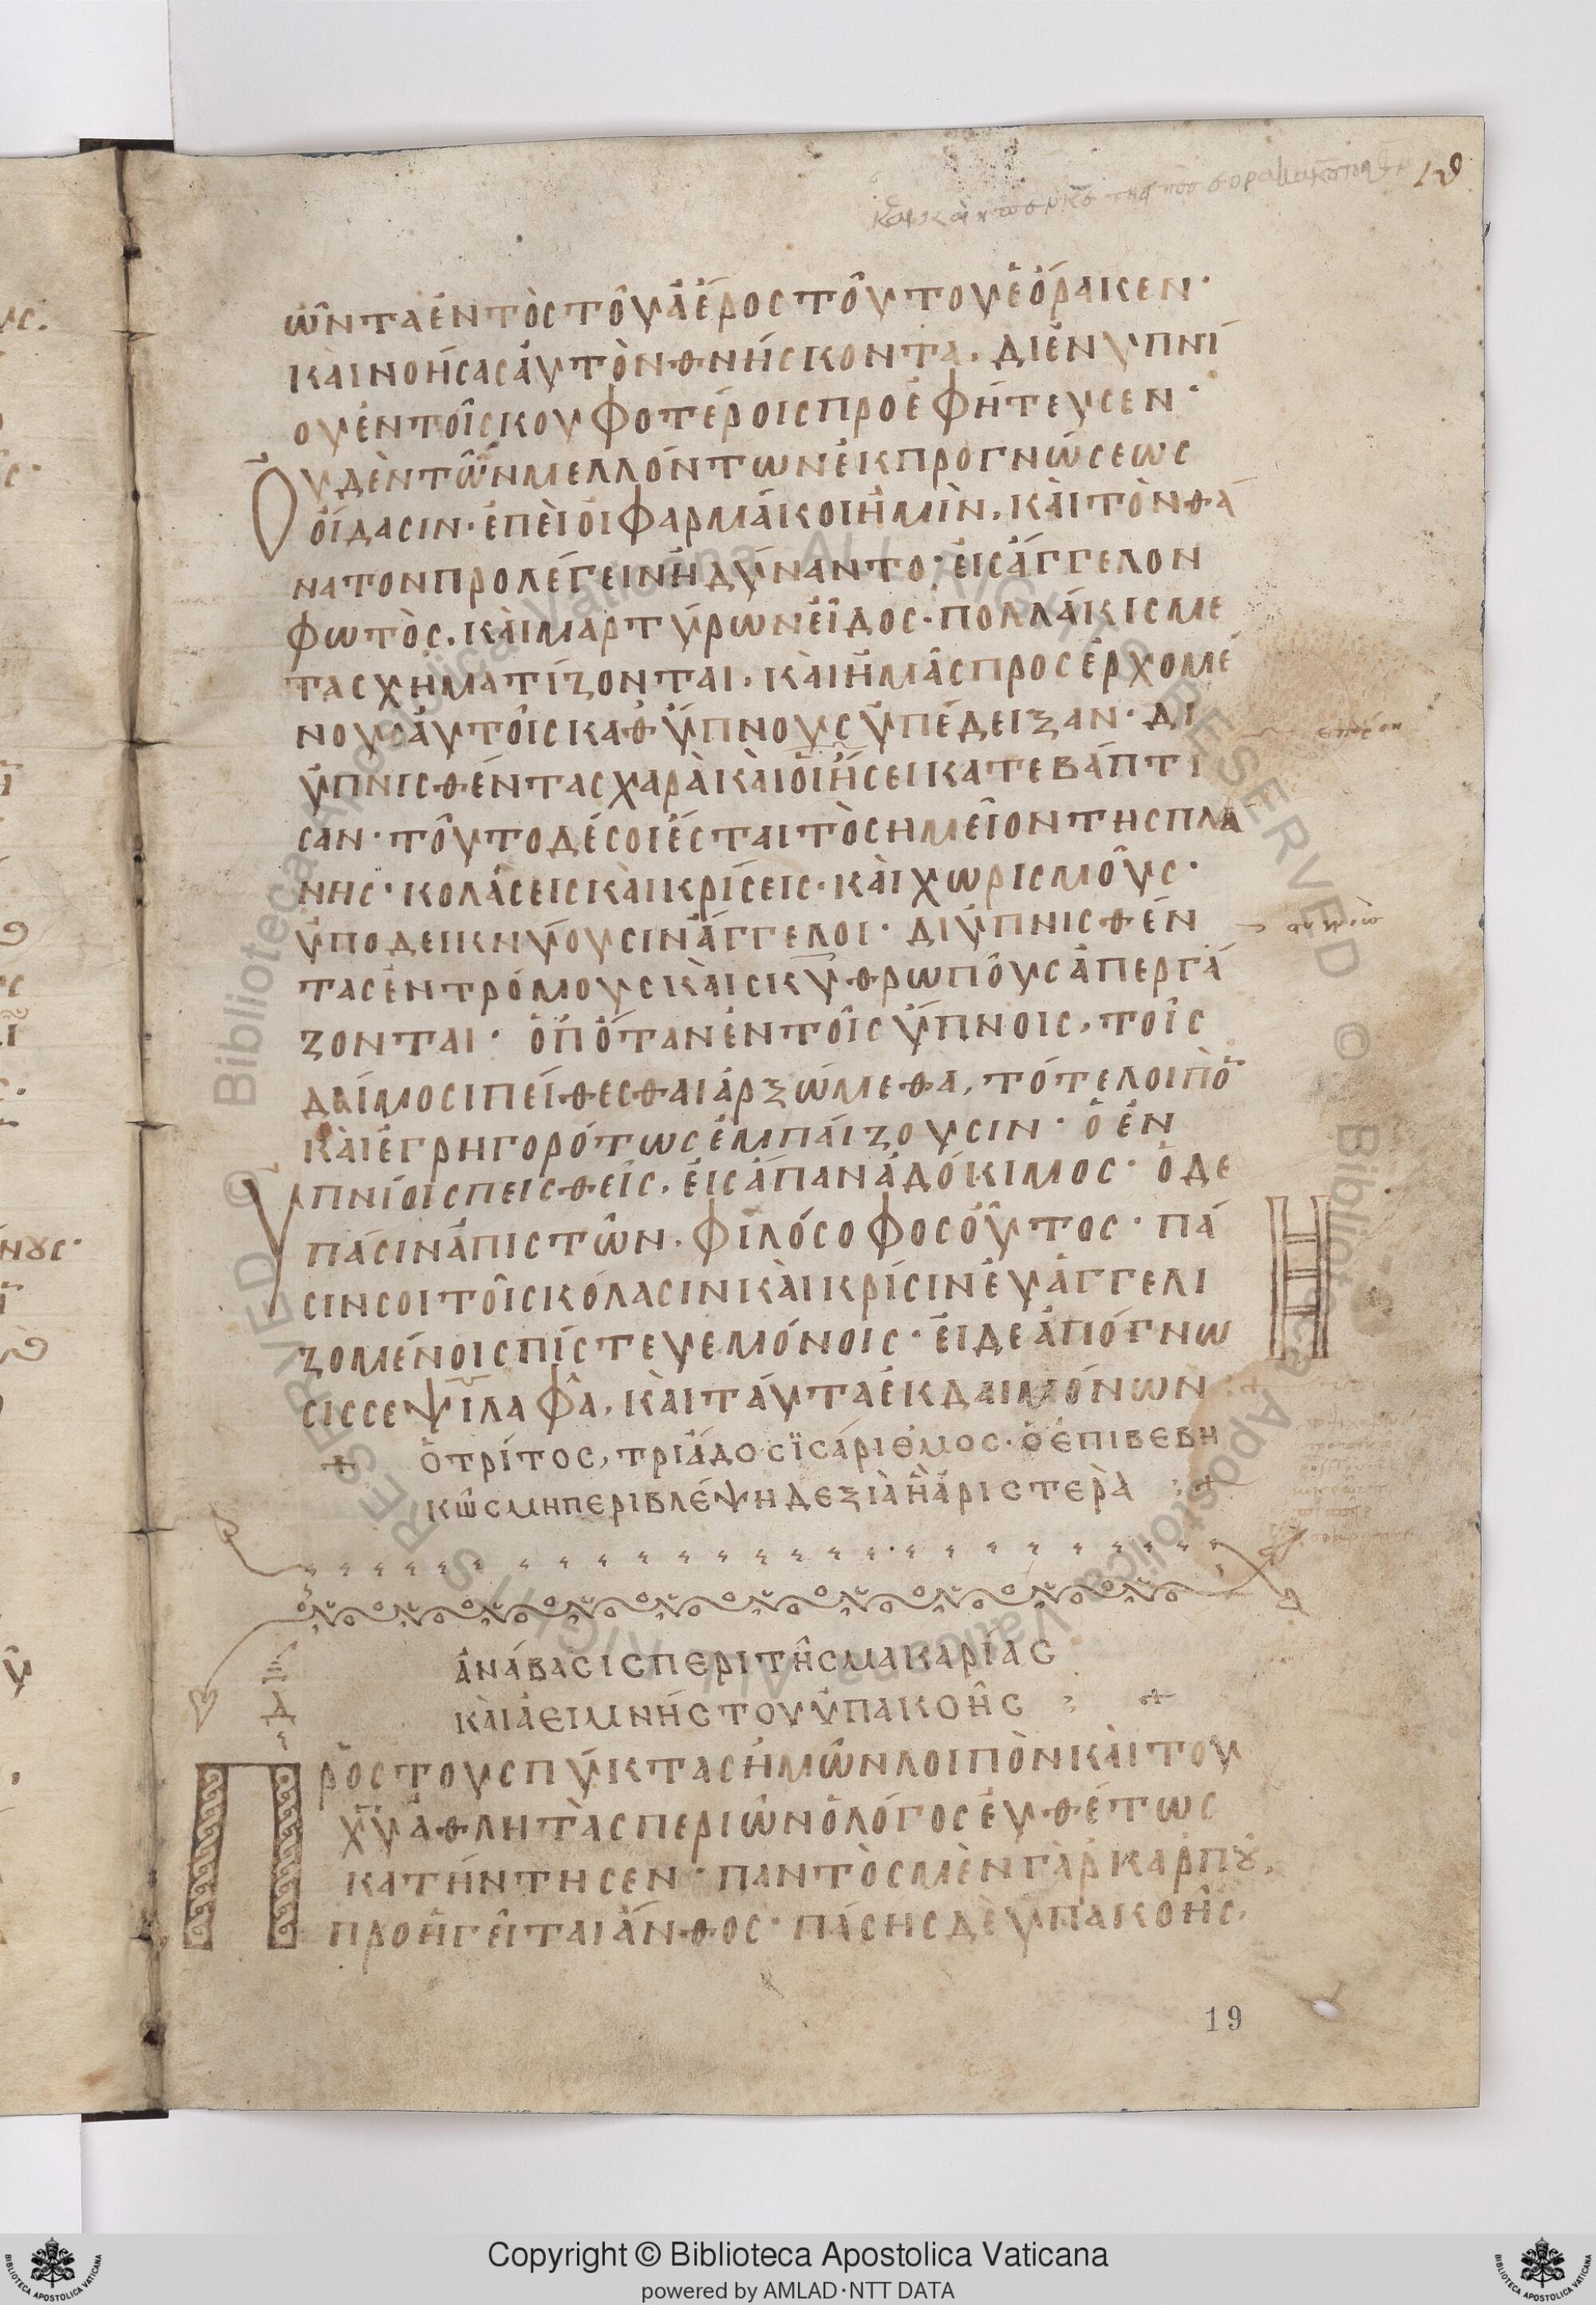 ιθ
ὦντα ἐντὸς τοῦ ἀέρος τούτου ἑόρακεν·
καὶ νοήσας αὐτὸν θνήσκοντα, δι' ἐνυπνί
ου ἐν τοῖς κουφοτέροις προεφήτευσεν·
Οὐδὲν τῶν μελλόντων ἐκ προγνώσεως
οἴδασιν· ἐπεὶ οἱ φαρμάκοι ἡμῖν, καὶ τὸν θά
νατον προλέγειν ἠδύναντο· εἰς ἄγγελον
φωτὸς, καὶ μαρτύρων εἶδος· πολλάκις με
τασχηματίζονται, καὶ ἡμᾶς προσερχομέ
νους αὐτοῖς καθ' ὕπνους ὑπέδειξαν· δι
ὑπνισθέντας χαρᾷ καὶ οἰήσει κατεβάπτι
σαν· τοῦτο δέ σοι ἔσται τὸ σημεῖον της πλά
νης· κολάσεις καὶ κρίσεις· καὶ χωρισμοὺς·
ὑποδεικνύουσιν ἄγγελοι· διυπνισθέν
τας ἐντρόμους καὶ σκυθρωποὺς ἀπεργά
ζονται· ὁπόταν ἐν τοῖς ὕπνοις, τοῖς
δαίμοσι πείθεσθαι ἀρξώμεθα, τότε λοιπὸ
καὶ ἐγρηγορότως ἐμπαίζουσιν· ὁ ἐν
Ὑπνίοις πεισθεὶς, εἰς ἅπαν ἀδόκιμος· ὁ δε
πάσιν ἀπιστῶν, φιλόσοφος οὗτος· πά
σιν σοι τοῖς κόλασιν καὶ κρίσιν εὐαγγελι
ζομένοις πίστευε μόνοις· εἰ δε ἀπόγνω
σις σε ψιλαφᾷ, καὶ ταύτα ἐκ δαιμόνων :+
+ ὁ τρίτος, τριάδος ἰσάριθμος· ὁ ἐπιβεβη
κὼς μη περιβλέψη δεξιὰ ἢ ἀριστερὰ :+
ἀνάβασις περὶ τῆς μακαρίας
καὶ ἀειμνήστου ὑπακοῆς : +
Δ
Πρὸς τους πύκτας ἡμῶν λοιπὸν καὶ του
χυ ἀθλητὰς περι ὧν ὁ λόγος εὐθέτως
κατήντησεν· παντὸς μὲν γὰρ καρπου,
προηγεῖται ἄνθος· πάσης δὲ ὑπακοῆς,
19
Copyright © Biblioteca Apostolica Vaticana
powered by AMLAD·NTT DATA